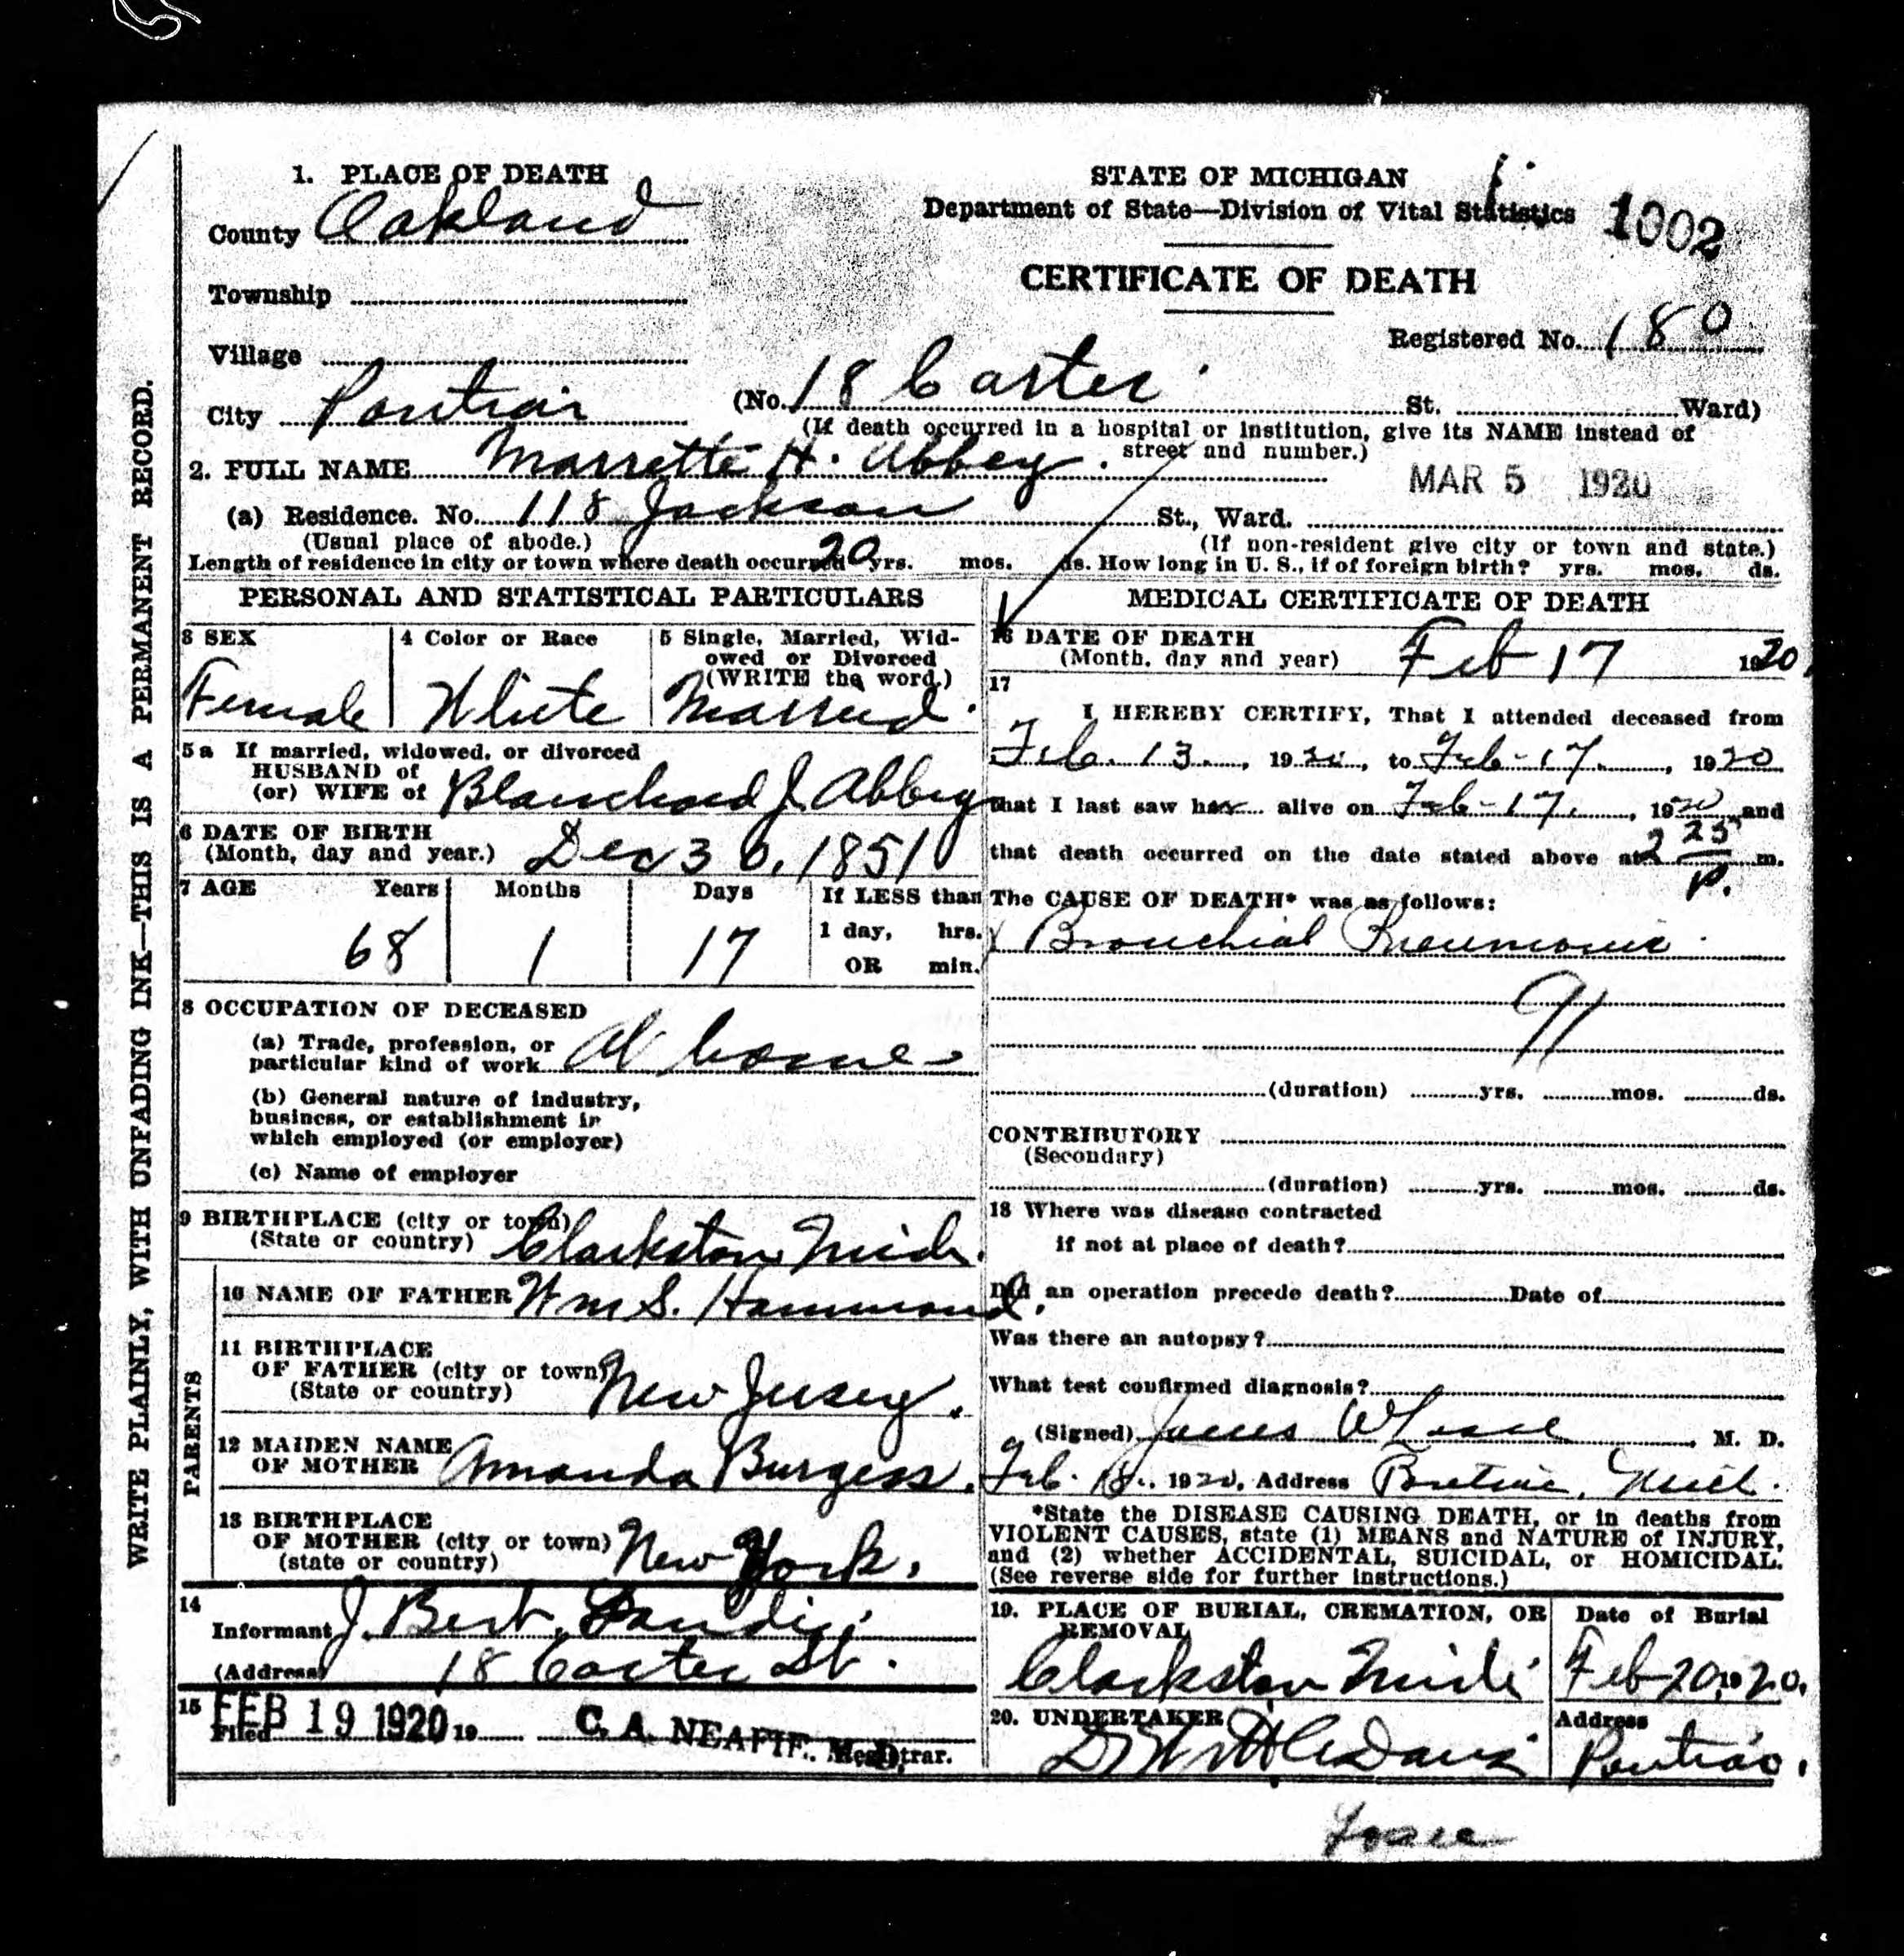 1. PLACE OF DEATH
County Oakland
Township
Village
City Pontiac
STATE OF MICHIGAN
Department of State—Division of Vital Statistics
1002
CERTIFICATE OF DEATH
Registered No. 180
(No. 18 Carter St. Ward)
(If death occurred in a hospital or institution, give its NAME instead of
street and number.)
2. FULL NAME Marrette H. Abbey.
MAR 5 1920
(a) Residence. No. 118 Jackson St., Ward.
(Usual place of abode.)
(If non-resident give city or town and state.)
Length of residence in city or town where death occurred 20 yrs. mos. ds. How long in U. S., if of foreign birth? yrs. mos. ds.
WRITE PLAINLY, WITH UNFADING INK—THIS IS A PERMANENT RECORD.
PERSONAL AND STATISTICAL PARTICULARS
3 SEX
Female
4 Color or Race
White
5 Single, Married, Wid-
owed or Divorced
(WRITE the word.)
Married.
5a If married, widowed, or divorced
HUSBAND of
(or) WIFE of Blanchard J. Abbey
6 DATE OF BIRTH
(Month, day and year.) Dec 30, 1851
7 AGE Years Months Days
68 1 17
If LESS than
1 day, hrs.
OR min.
8 OCCUPATION OF DECEASED
(a) Trade, profession, or
particular kind of work At home
(b) General nature of industry,
business, or establishment in
which employed (or employer)
(c) Name of employer
9 BIRTHPLACE (city or town)
(State or country) Clarkston Mich.
PARENTS
10 NAME OF FATHER Wm S. Hammond.
11 BIRTHPLACE
OF FATHER (city or town)
(State or country) New Jersey.
12 MAIDEN NAME
OF MOTHER Amanda Burgess.
13 BIRTHPLACE
OF MOTHER (city or town)
(state or country) New York.
14
Informant J. Bert
(Address) 18 Carter St.
15
Filed FEB 19 1920 19
C. A. NEAFIE, M.D. Registrar.
MEDICAL CERTIFICATE OF DEATH
16 DATE OF DEATH
(Month, day and year) Feb 17 1920.
17
I HEREBY CERTIFY, That I attended deceased from
Feb. 13., 1920, to Feb-17., 1920
that I last saw her alive on Feb-17., 1920 and
that death occurred on the date stated above at 2 25 P. m.
The CAUSE OF DEATH* was as follows:
Bronchial Pneumonia.
91
(duration) yrs. mos. ds.
CONTRIBUTORY
(Secondary)
(duration) yrs. mos. ds.
18 Where was disease contracted
if not at place of death?
Did an operation precede death? Date of
Was there an autopsy?
What test confirmed diagnosis?
(Signed) James W Losee, M. D.
Feb. 18., 1920, Address Pontiac, Mich.
*State the DISEASE CAUSING DEATH, or in deaths from
VIOLENT CAUSES, state (1) MEANS and NATURE of INJURY,
and (2) whether ACCIDENTAL, SUICIDAL, or HOMICIDAL.
(See reverse side for further instructions.)
19. PLACE OF BURIAL, CREMATION, OR
REMOVAL
Clarkston Mich.
Date of Burial
Feb 20, 1920.
20. UNDERTAKER
Davis
Address
Pontiac.
Losee